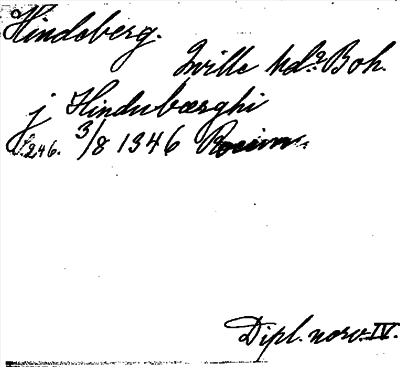 Hindeberg.
Tville hd? Boh.
j Hindubærghi
S. 246. 3/8 1346
Dipl. norv. IV.